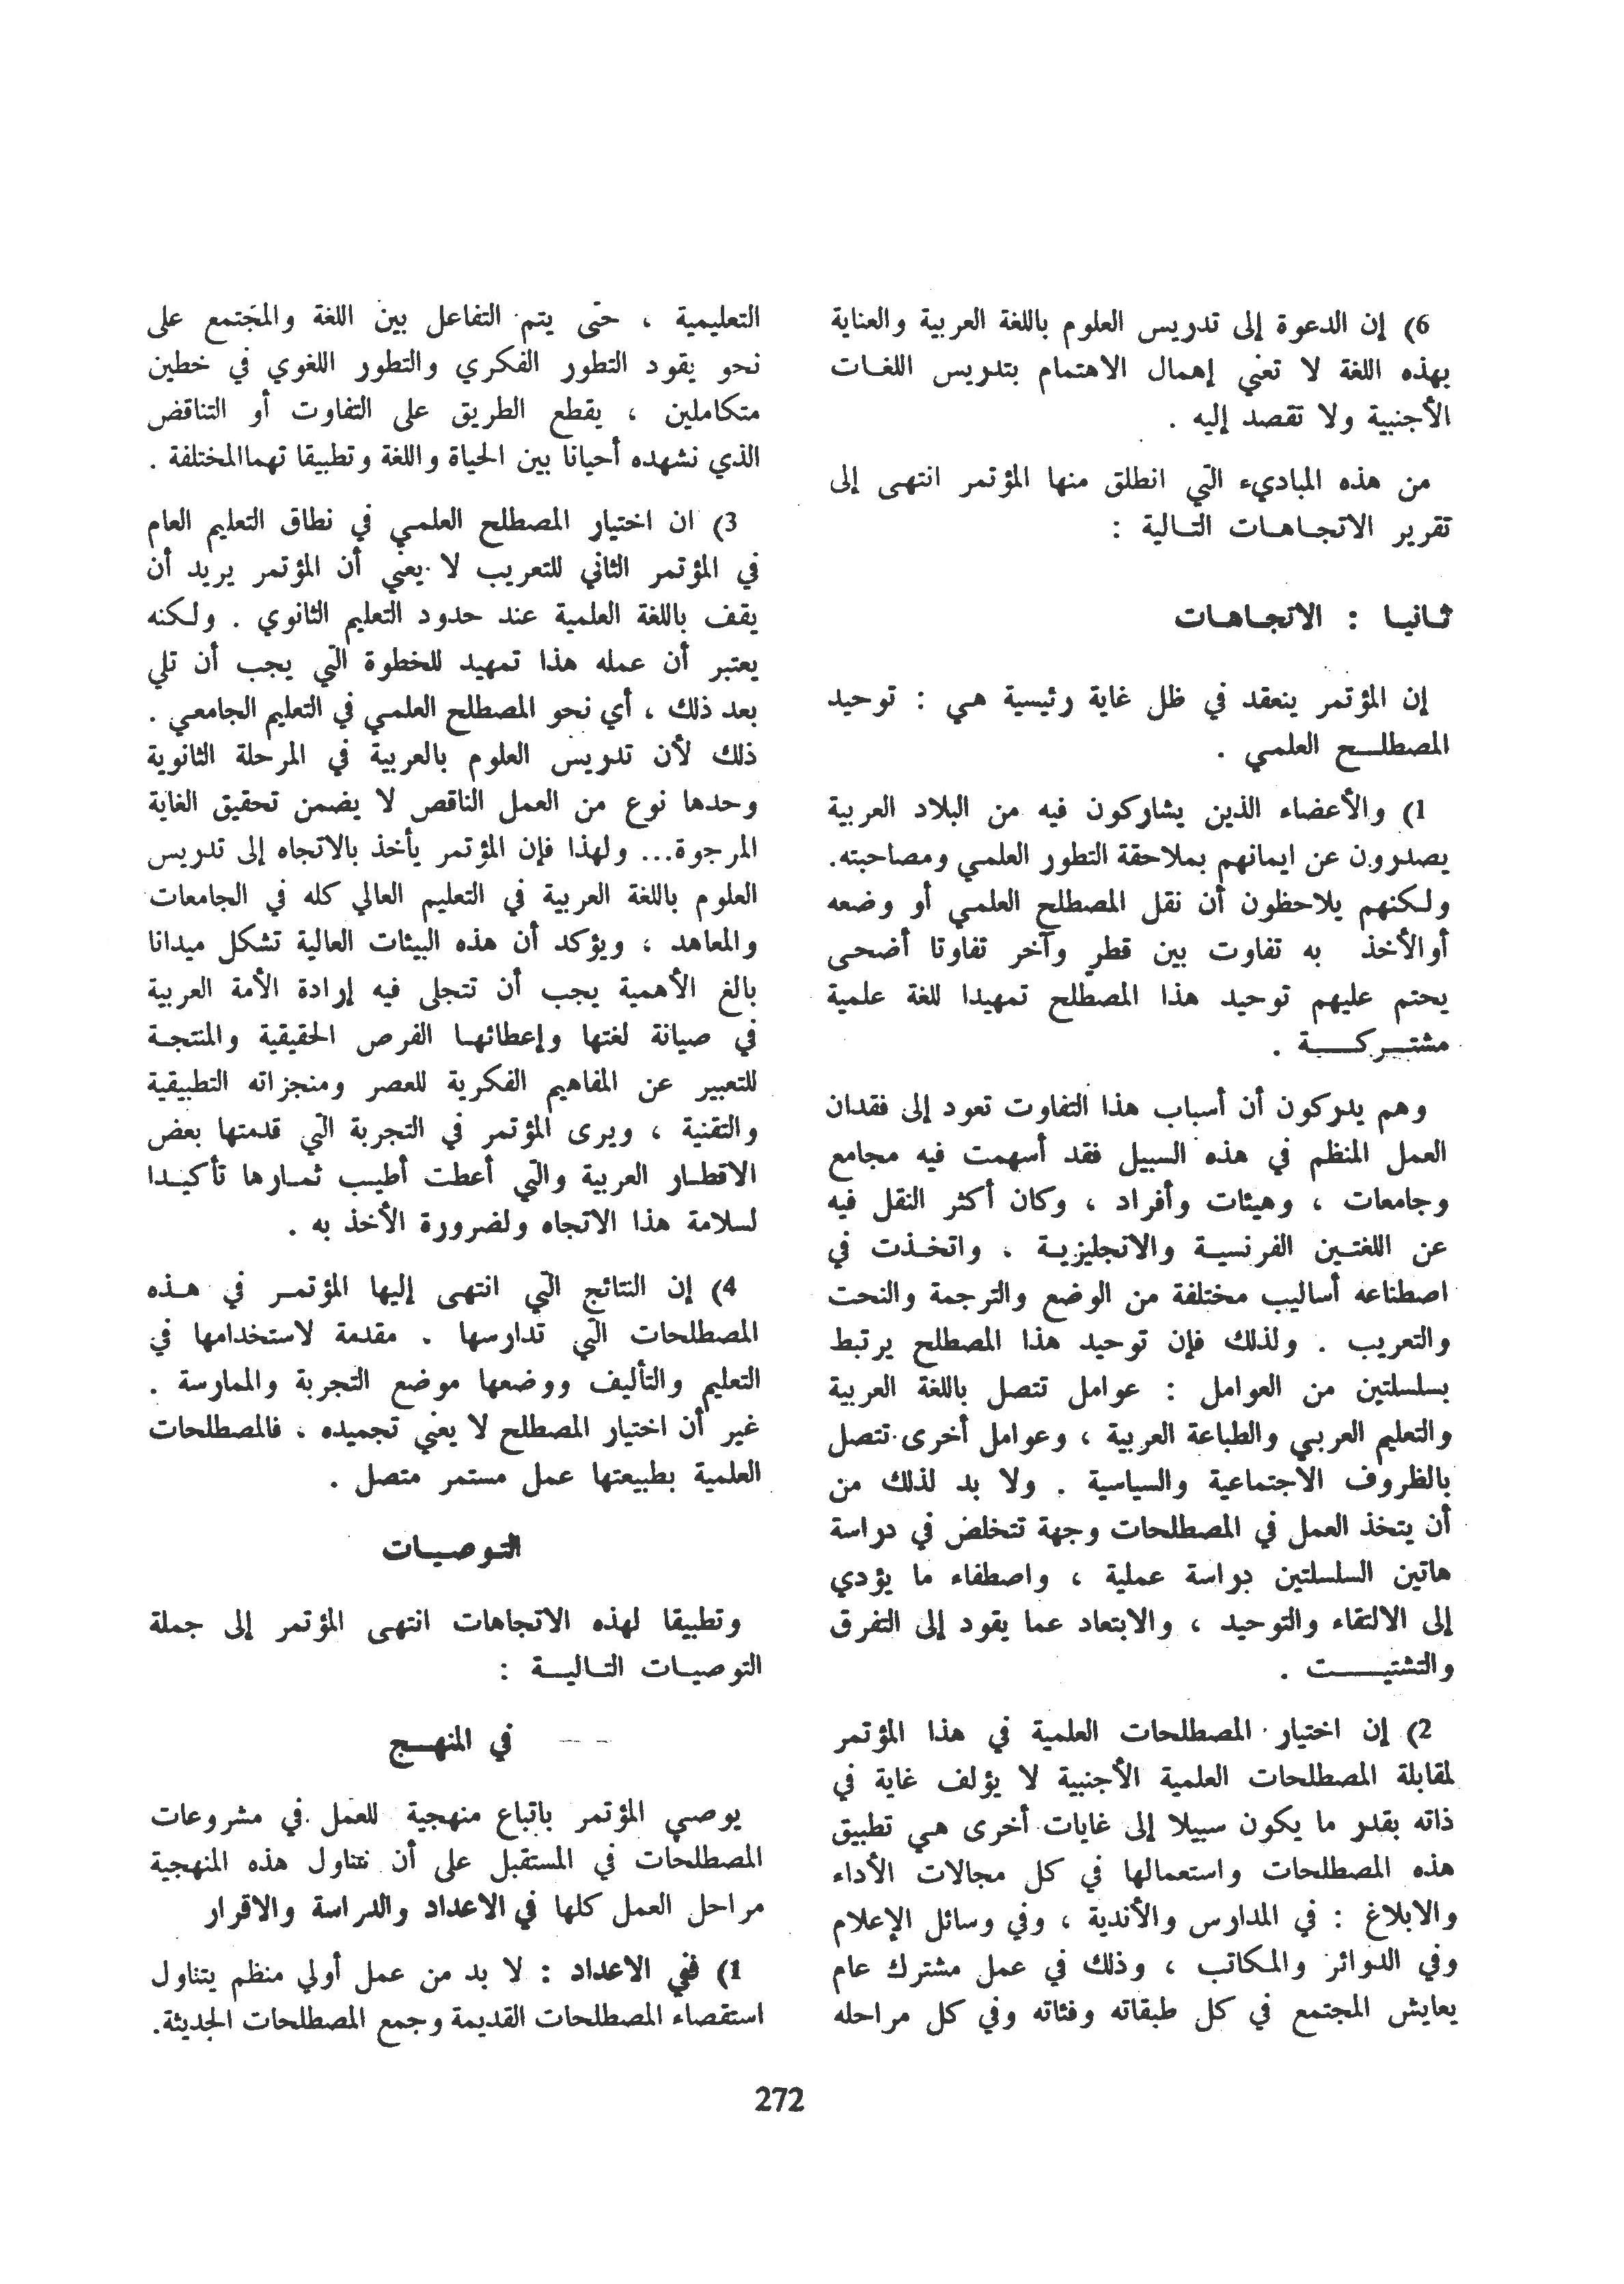 6) إن الدعوة إلى تدريس العلوم باللغة العربية والعناية
بهذه اللغة لا تعني إهمال الاهتمام بتدريس اللغات
الأجنبية ولا تقصد إليه .
من هذه المباديء التي انطلق منها المؤتمر انتهى إلى
تقرير الاتجاهات التالية :
ثانيا : الاتجاهات
إن المؤتمر ينعقد في ظل غاية رئيسية هي : توحيد
المصطلح العلمي .
1) والأعضاء الذين يشاركون فيه من البلاد العربية
يصدرون عن ايمانهم بملاحقة التطور العلمي ومصاحبته.
ولكنهم يلاحظون أن نقل المصطلح العلمي أو وضعه
أوالأخذ به تفاوت بين قطر وآخر تفاوتا أضحى
يحتم عليهم توحيد هذا المصطلح تمهيدا للغة علمية
مشتركة .
وهم يدركون أن أسباب هذا التفاوت تعود إلى فقدان
العمل المنظم في هذه السبيل فقد أسهمت فيه مجامع
وجامعات ، وهيئات وأفراد ، وكان أكثر النقل فيه
عن اللغتين الفرنسية والانجليزية . واتخذت في
اصطناعه أساليب مختلفة من الوضع والترجمة والنحت
والتعريب . ولذلك فإن توحيد هذا المصطلح يرتبط
بسلسلتين من العوامل : عوامل تتصل باللغة العربية
والتعليم العربي والطباعة العربية ، وعوامل أخرى تتصل
بالظروف الاجتماعية والسياسية . ولا بد لذلك من
أن يتخذ العمل في المصطلحات وجهة تتخلص في دراسة
هاتين السلسلتين دراسة عملية ، واصطفاء ما يؤدي
إلى الالتقاء والتوحيد ، والابتعاد عما يقود إلى التفرق
والتشتيت .
2) إن اختيار المصطلحات العلمية في هذا المؤتمر
لمقابلة المصطلحات العلمية الأجنبية لا يؤلف غاية في
ذاته بقدر ما يكون سبيلا إلى غايات أخرى هي تطبيق
هذه المصطلحات واستعمالها في كل مجالات الأداء
والابلاغ : في المدارس والأندية ، وفي وسائل الإعلام
وفي الدوائر والمكاتب ، وذلك في عمل مشترك عام
يعايش المجتمع في كل طبقاته وفئاته وفي كل مراحله
التعليمية ، حتى يتم التفاعل بين اللغة والمجتمع على
نحو يقود التطور الفكري والتطور اللغوي في خطين
متكاملين ، يقطع الطريق على التفاوت أو التناقض
الذي نشهده أحيانا بين الحياة واللغة وتطبيقا تهماالمختلفة .
3) ان اختيار المصطلح العلمي في نطاق التعليم العام
في المؤتمر الثاني للتعريب لا يعني أن المؤتمر يريد أن
يقف باللغة العلمية عند حدود التعليم الثانوي . ولكنه
يعتبر أن عمله هذا تمهيد للخطوة التي يجب أن تلي
بعد ذلك ، أي نحو المصطلح العلمي في التعليم الجامعي .
ذلك لأن تدريس العلوم بالعربية في المرحلة الثانوية
وحدها نوع من العمل الناقص لا يضمن تحقيق الغاية
المرجوة... ولهذا فإن المؤتمر يأخذ بالاتجاه إلى تدريس
العلوم باللغة العربية في التعليم العالي كله في الجامعات
والمعاهد ، ويؤكد أن هذه البيئات العالية تشكل ميدانا
بالغ الأهمية يجب أن تتجلى فيه إرادة الأمة العربية
في صيانة لغتها وإعطائها الفرص الحقيقية والمنتجة
للتعبير عن المفاهيم الفكرية للعصر ومنجزاته التطبيقية
والتقنية ، ويرى المؤتمر في التجربة التي قدمتها بعض
الاقطار العربية والتي أعطت أطيب ثمارها تأكيدا
لسلامة هذا الاتجاه ولضرورة الأخذ به .
4) إن النتائج التي انتهى إليها المؤتمر في هذه
المصطلحات التي تدارسها . مقدمة لاستخدامها في
التعليم والتأليف ووضعها موضع التجربة والممارسة .
غير أن اختيار المصطلح لا يعني تجميده ، فالمصطلحات
العلمية بطبيعتها عمل مستمر متصل .
التوصيات
وتطبيقا لهذه الاتجاهات انتهى المؤتمر إلى جملة
التوصيات التالية :
في المنهج
يوصي المؤتمر باتباع منهجية للعمل في مشروعات
المصطلحات في المستقبل على أن تتناول هذه المنهجية
مراحل العمل كلها في الاعداد والدراسة والاقرار
1) ففي الاعداد : لا بد من عمل أولي منظم يتناول
استقصاء المصطلحات القديمة وجمع المصطلحات الجديثة.
272